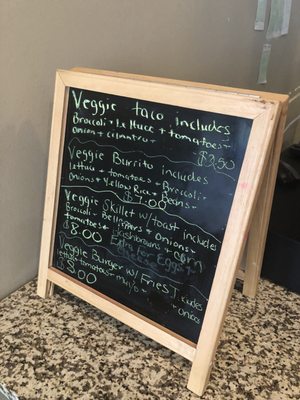 Veggie taco includes
Broccoli + Lettuce + tomatoes +
Onion + cilantro
$3.50
Veggie Burrito includes
lettuce + tomatoes + Broccoli
Onions + Yellow Rice + Beans
$7.00
Veggie Skillet w/toast includes
Broccoli - Bellpeppers + Onions +
tomatoes - Mushrooms - corn
$8.00
Veggie Burger w/ Fries Includes
lettuce + tomatoes + mayo +
onions
$8.00